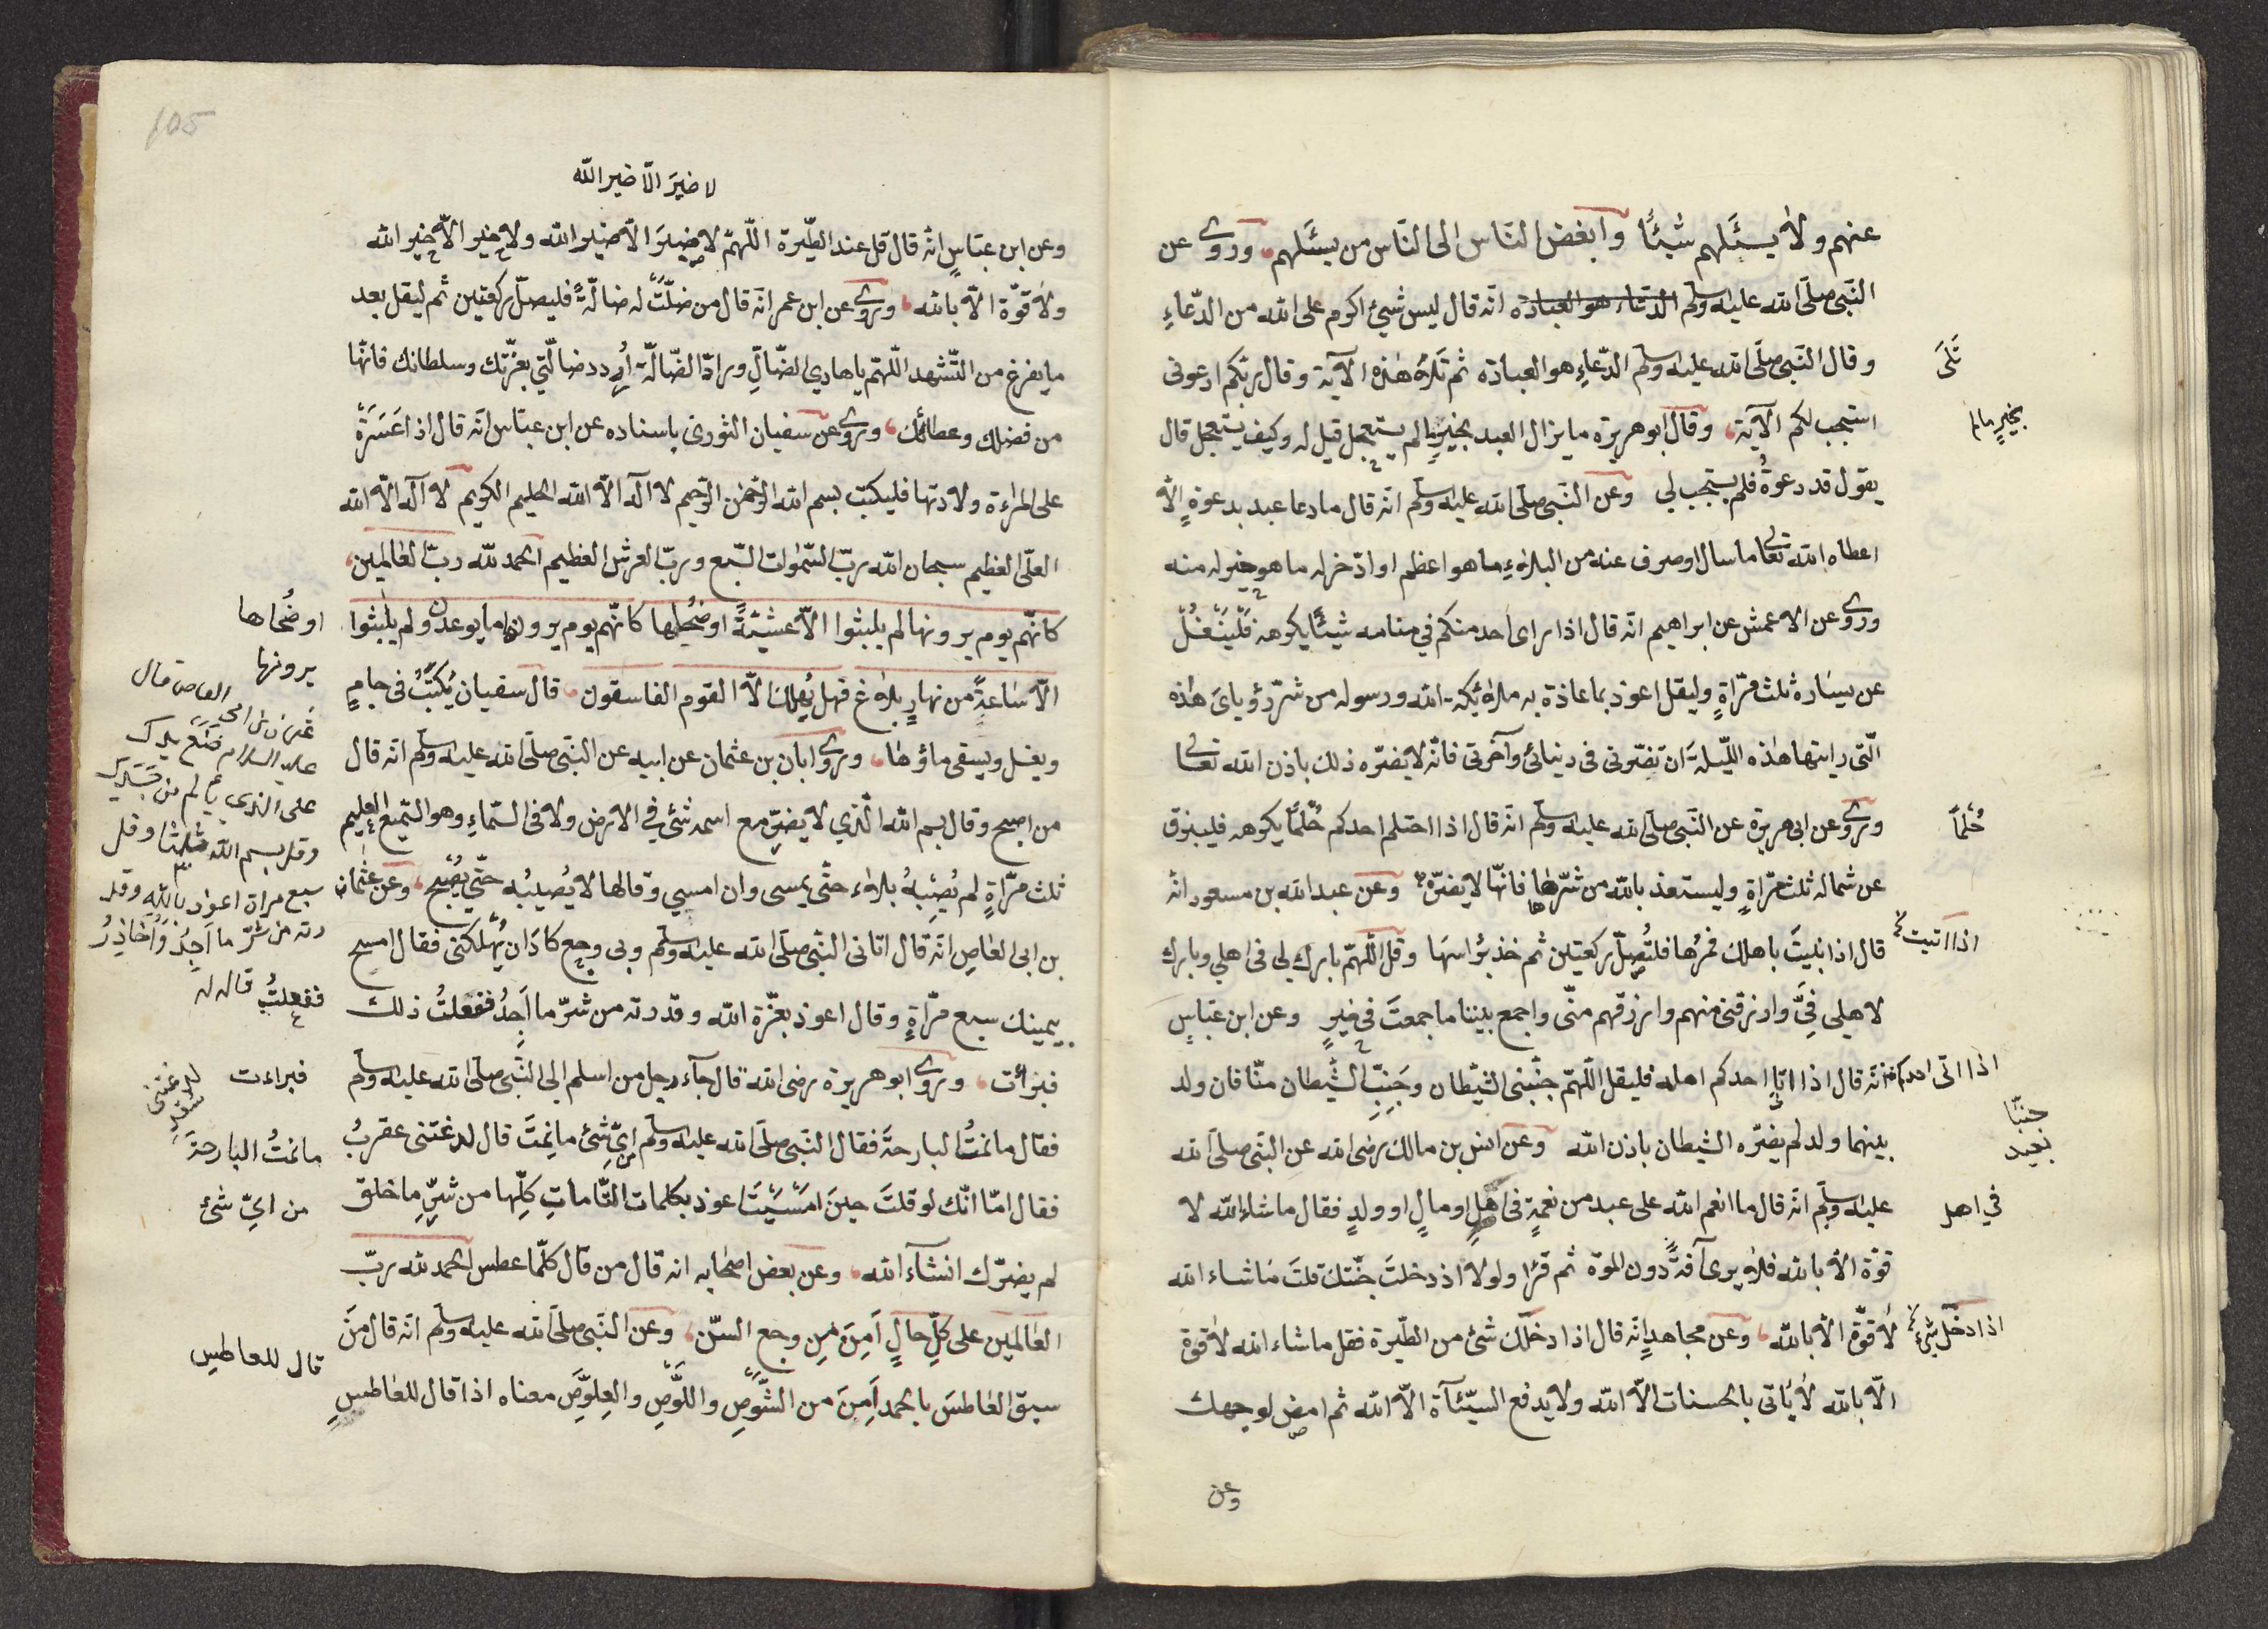 عنهم ولا يسئلهم شيئًا وابغض الناس الى الناس من يسئلهم وروى عن
النبي صلى الله عليه وسلم الدعاء هو العبادة انه قال ليس شيئ اكرم على الله من الدعاءِ
وقال النبي صلى الله عليه وسلم الدعاءِ هو العبادة ثم تلاهُ هذه الآية وقال ربكم ادعونى
تَلَى
استجب لكم الآية وقال ابو هريرة ما يزال العبد بخيرٍ ما لم يستعجل قيل له وكيف يستعجل قال
بخيرٍ مالم
يقول قد دعوةُ فلم يستجب لي وعن النبي صلى الله عليه وسلم انه قال ما دعا عبد بدعوةٍ الا
اعطاه الله تعالى ما سال او صرف عنه من البلاءِ ما هو اعظم او ادّخر له ما هو خير له منه
وروى عن الاعمش عن ابراهيم انه قال اذا راى احد منكم في منامه شيئًا يكرهه فلينفُل
عن يساره ثلث مرّاةٍ وليقل اعوذ بما عاذة به ملائكة الله ورسوله من شرّ رؤياىَ هذه
الّتى رايتها هذه الليلة ان تضرّنى فى دنيائى وآخرتى فانّه لا يضرّه ذلك باذن الله تعالى
وروى عن ابى هريرة عن النبي صلى الله عليه وسلم انه قال اذا احتلم احدكم حُلمًا يكرهه فليبزق
حُلْماً
عن شماله ثلث مرّاةٍ وليستعذ بالله من شرّها فانّها لا يضرّه وعن عبد الله بن مسعود انه
قال اذا بليتَ باهلك فمرُها فلتُصلّ ركعتين ثم خذ برُاسهَا وقل اللّهمّ بارك لي فى اهلي وبارك
اذا اتيت
لاهلى فِيَّ وارزقنى منهم وارزقهم منّى واجمع بيننا ما جمعتَ في خيرٍ وعن ابن عبّاسٍ
انه قال اذا اتا احدكم اهله فليقل اللّهمّ جنّبنى الشيطان وجَنِبِ الشيطان منّا فان ولد
اذا اتى احدكم
جنبّا
بينهما ولد لم يضرّه الشيطان باذن الله وعن انس بن مالك رضى الله عن النبي صلى الله
بعيد
عليه وسلم انه قال ما انعم الله على عبد من نعمةٍ فى اهلٍ او مالٍ او ولدٍ فقال ماشاء الله لا
في اهل
قوّة الا بالله فلا يرى آفةً دون الموة ثم قرا ولولا اذ دخلتَ جنّتك قلتَ ماشاء الله
لا قوّة الا بالله وعن مجاهدٍ انه قال اذا دخلك شئ من الطيرة فقل ماشاء الله لا قوة
اذا دخل شئ
الّا بالله لا يُاتى بالحسنات الّا الله ولا يدفع السيّئآة الّا الله ثم امض لوجهك
وعن
105
لا ضيرَ الّا ضير الله
وعن ابن عبّاسٍ انه قال قل عند الطيّرة اللّهمّ لا ضيرَ الّا ضير الله ولا خير الّا خير الله
ولا قوّة الّا بالله وروى عن ابن عمر انه قال من ضلّتْ له ضالّةً فليصلّ ركعتين ثم ليقل بعد
ما يفرغ من التّشهد اللّهمّ يا هادى الضّالِّ ورادّ الضّالّة اُردد ضالّتي بعزّتك وسلطانك فانّها
من فضلك وعطائك وروى عن سفيان الثورى باسناده عن ابن عبّاس انه قال اذا عَسَرَةْ
على المراءة ولادتها فليكتب بسم الله الرحمن الرحيم لا اله الّا الله الحليم الكريم لا اله الّا الله
العلىّ العظيم سبحان الله ربّ السّموات السّبع وربّ العرش العظيم الحمد لله ربّ العالمين
كانّهم يوم يرونها لم يلبثوا الّا عشيّةً او ضُحٰيها كانّهم يوم يرون ما يوعدون ولم يلبثوا
او ضُحاها
يرونها
الّا ساعةً من نهارٍ بلاغ فهل يُهلك الّا القوم الفاسقون قال سفيان يُكتبُ فى جامٍ
ويغسل ويسقى ماؤها وروى ابان بن عثمان عن ابيه عن النبي صلى الله عليه وسلم انه قال
من اصبح وقال بسم الله الّذي لا يضرّ مع اسمه شئ في الارض ولا فى السّماءِ وهو السّميع العليم
ثلث مرّاةٍ لم يُصبهُ بلاء حتّى يمسى وان امسي وقالها لا يُصيبُه حتّى يُصبح وعن عثمان
بن ابى العاصِ انه قال اتانى النبي صلى الله عليه وسلم وبى وجع كادَ ان يُهلكنى فقال امسح
بيمينك سبع مرّاةٍ وقال اعوذ بعزّة الله وقدرته من شرّ ما اَجِدُ ففعلتُ ذلك
عليه السلام
على الذي
وقل بسم الله ثلثا وقل
سبع مراة اعوذ بالله وقد
رته من شرّ ما اَجِدُ وَاُحَاذِرُ
ففعلتُ قال له
فبرأت وروى ابو هريرة رضى الله قال جآء رجل من اسلم الى النبي صلى الله عليه وسلم
فبراءت
فقال ما نمتُ البارحة فقال النبي صلى الله عليه وسلم اىّ شئ ما نِمتَ قال لدغتنى عقربُ
ما نمتُ البارحة
فقال امّا انّك لو قلتَ حينَ امسَيْتَ اعوذ بكلمات التّاماتِ كلّها من شرِّ ما خلق
من ايّ شئ
لم يضرّك انشآء الله وعن بعض اصحابه انه قال من قال كلّما عطس الحمد لله ربّ
العالمين على كلّ حالٍ اَمِنَ مِن وجع السّن وعن النبي صلى الله عليه وسلم انه قال مَنَ
سبق العاطسَ بالحمد اَمِنَ من الشَّوصِ واللَّوصِ والعِلوَّصِ معناه اذا قال للعاطسِ
قال للعاطس